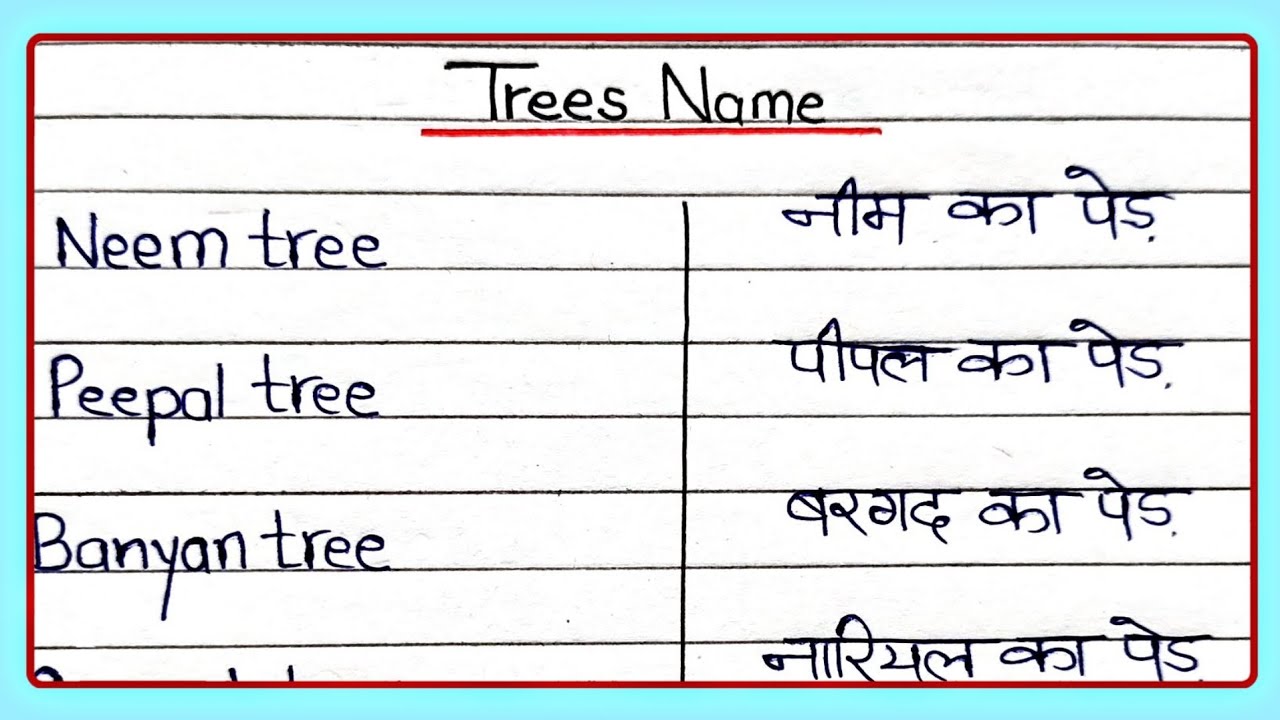 Trees Name
Neem tree नीम का पेड़
Peepal tree पीपल का पेड़
Banyan tree बरगद का पेड़
नारियल का पेड़